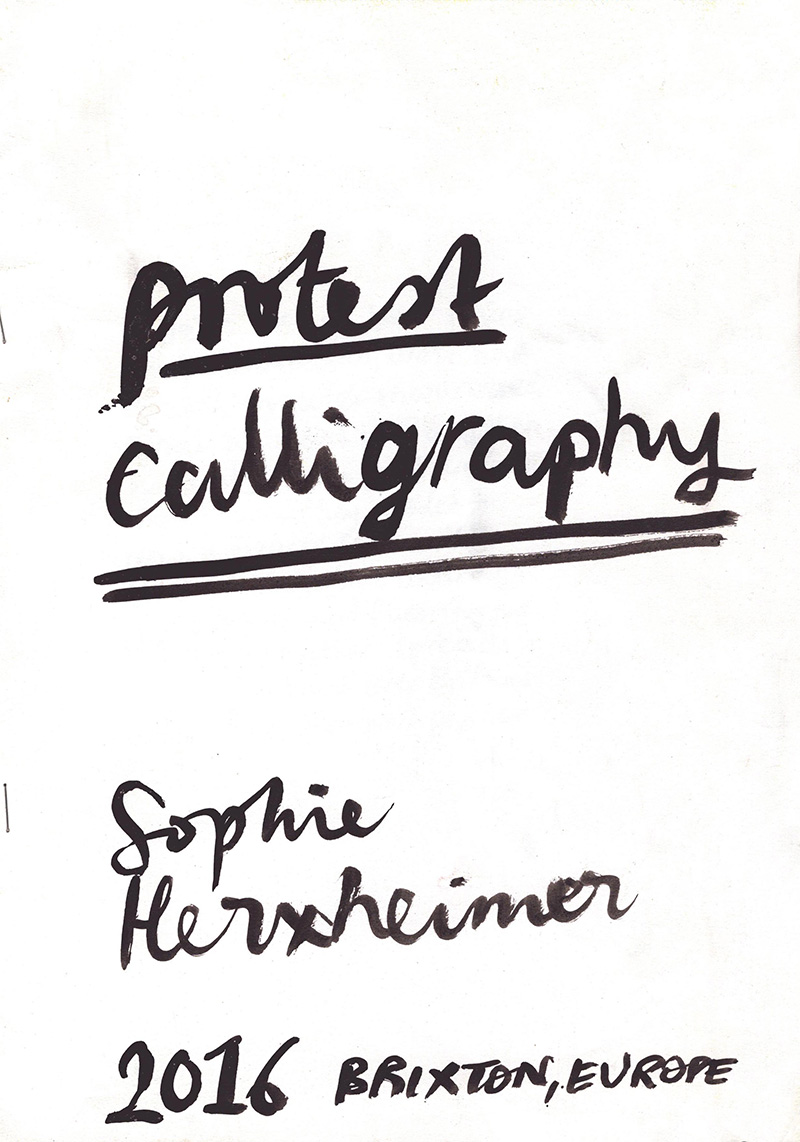 protest
calligraphy
Sophie
Herxheimer
2016 BRIXTON, EUROPE